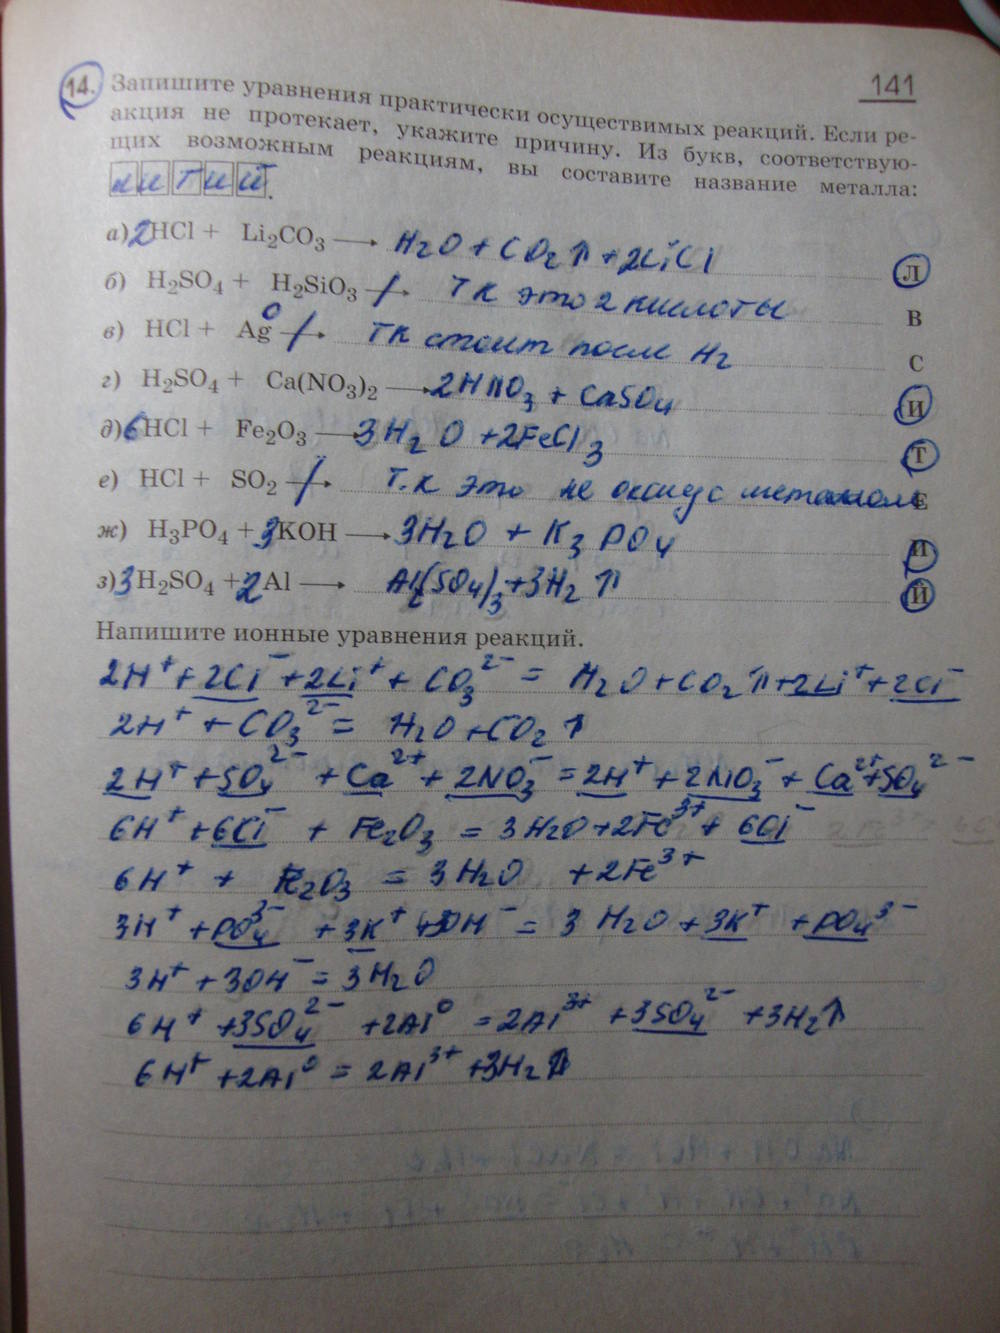 141
14. Запишите уравнения практически осуществимых реакций. Если ре-
акция не протекает, укажите причину. Из букв, соответствую-
щих возможным реакциям, вы составите название металла:
литий.
а) 2HCl + Li₂CO₃ → H₂O + CO₂↑ + 2LiCl Л
б) H₂SO₄ + H₂SiO₃ → Тк это 2 кислоты В
в) HCl + Ag⁰ → Тк стоит после H₂ С
г) H₂SO₄ + Ca(NO₃)₂ → 2HNO₃ + CaSO₄ И
д) 6HCl + Fe₂O₃ → 3H₂O + 2FeCl₃ Т
е) HCl + SO₂ → Т.к это не оксид с металлом Е
ж) H₃PO₄ + 3KOH → 3H₂O + K₃PO₄ И
з) 3H₂SO₄ + 2Al → Al₂(SO₄)₃ + 3H₂↑ Й
Напишите ионные уравнения реакций.
2H⁺ + 2Cl⁻ + 2Li⁺ + CO₃²⁻ = H₂O + CO₂↑ + 2Li⁺ + 2Cl⁻
2H⁺ + CO₃²⁻ = H₂O + CO₂↑
2H⁺ + SO₄²⁻ + Ca²⁺ + 2NO₃⁻ = 2H⁺ + 2NO₃⁻ + Ca²⁺ + SO₄²⁻
6H⁺ + 6Cl⁻ + Fe₂O₃ = 3H₂O + 2Fe³⁺ + 6Cl⁻
6H⁺ + Fe₂O₃ = 3H₂O + 2Fe³⁺
3H⁺ + PO₄³⁻ + 3K⁺ + 3OH⁻ = 3H₂O + 3K⁺ + PO₄³⁻
3H⁺ + 3OH⁻ = 3H₂O
6H⁺ + 3SO₄²⁻ + 2Al⁰ = 2Al³⁺ + 3SO₄²⁻ + 3H₂↑
6H⁺ + 2Al⁰ = 2Al³⁺ + 3H₂↑